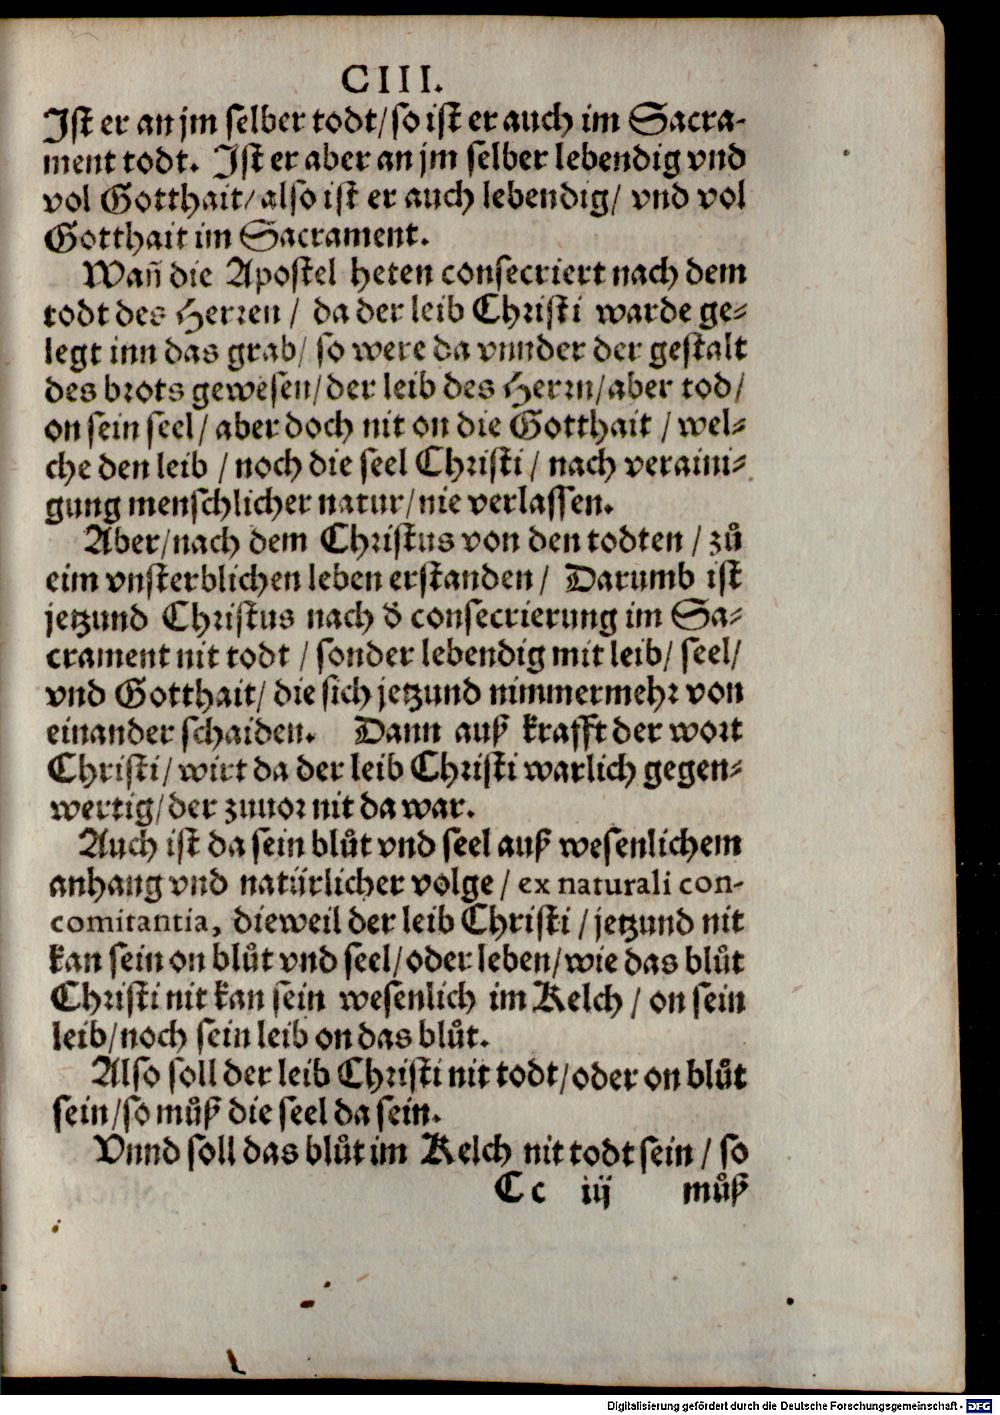 CIII.
Ist er an jm selber todt/so ist er auch im Sacra-
ment todt. Ist er aber an jm selber lebendig vnd
vol Gotthait/also ist er auch lebendig/ vnd vol
Gotthait im Sacrament.
Wañ die Apostel heten consecriert nach dem
todt des Herren / da der leib Christi warde ge-
legt inn das grab/ so were da vnnder der gestalt
des brots gewesen/der leib des Herrn/aber tod/
on sein seel/ aber doch nit on die Gotthait / wel-
che den leib / noch die seel Christi / nach veraini-
gung menschlicher natur/nie verlassen.
Aber/nach dem Christus von den todten / zů
eim vnsterblichen leben erstanden / Darumb ist
jetzund Christus nach d̕ consecrierung im Sa-
crament nit todt / sonder lebendig mit leib/ seel/
vnd Gotthait/ die sich jetzund nimmermehr von
einander schaiden. Dann auß krafft der wort
Christi/ wirt da der leib Christi warlich gegen-
wertig/der zuuor nit da war.
Auch ist da sein blůt vnd seel auß wesenlichem
anhang vnd natürlicher volge / ex naturali con-
comitantia, dieweil der leib Christi / jetzund nit
kan sein on blůt vnd seel/oder leben/wie das blůt
Christi nit kan sein wesenlich im Kelch / on sein
leib/noch sein leib on das blůt.
Also soll der leib Christi nit todt/oder on blůt
sein/so můß die seel da sein.
Vnnd soll das blůt im Kelch nit todt sein / so
Cc iij můß
Digitalisierung gefördert durch die Deutsche Forschungsgemeinschaft - DFG